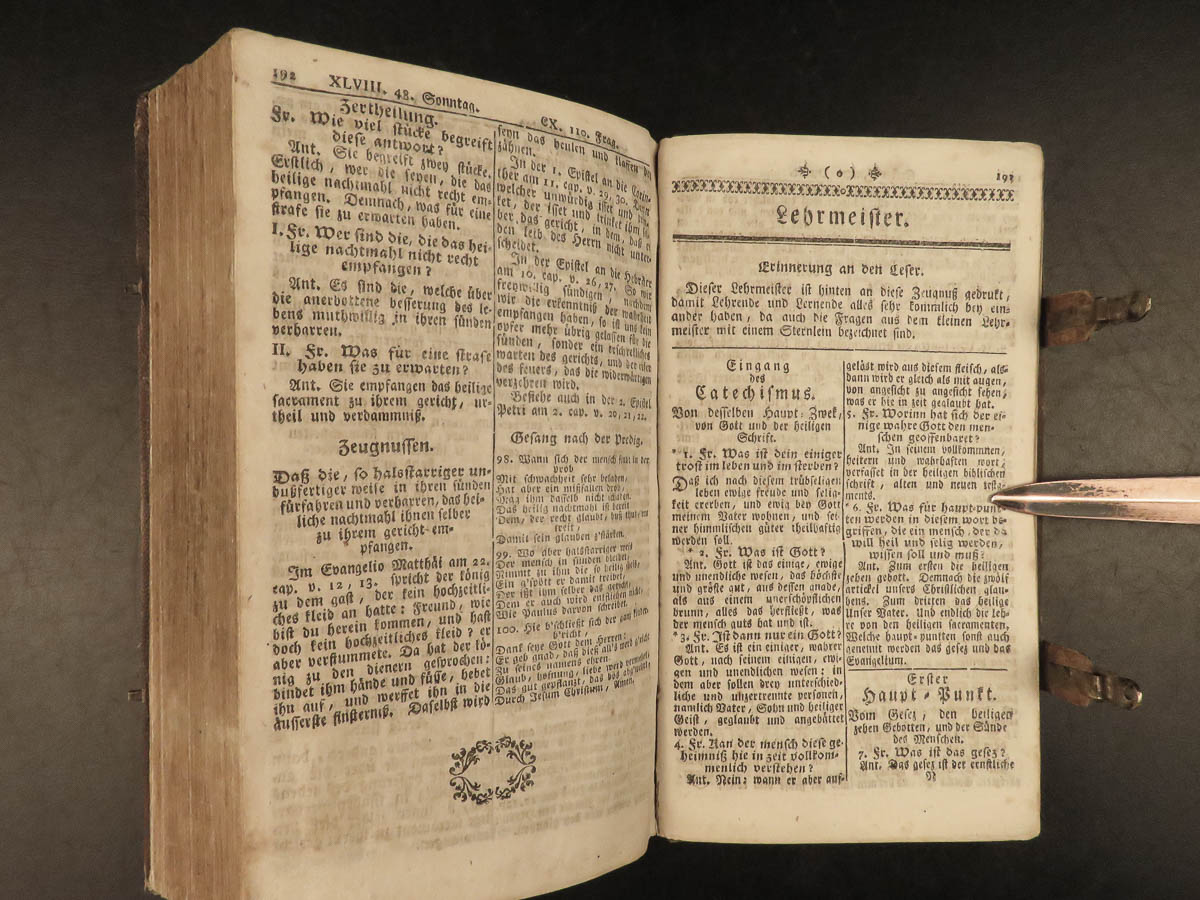 192 XLVIII. 48. Sonntag. CX. 110. Frag.
Zertheilung.
Fr. Wie viel stücke begreift
diese antwort?
Ant. Sie begreift zwey stücke.
Erstlich, wer die seyen, die das
heilige nachtmahl nicht recht em-
pfangen. Demnach, was für eine
strafe sie zu erwarten haben.
I. Fr. Wer sind die, die das hei-
lige nachtmahl nicht recht
empfangen?
Ant. Es sind die, welche über
die anerbottene besserung des le-
bens muthwillig in ihren sünden
verharren.
II. Fr. Was für eine strafe
haben sie zu erwarten?
Ant. Sie empfangen das heilige
sacrament zu ihrem gericht, ur-
theil und verdammniß.
Zeugnussen.
Daß die, so halsstarriger un-
bußfertiger weise in ihren sünden
fürfahren und verharren, das hei-
liche nachtmahl ihnen selber
zu ihrem gericht em-
pfangen.
Im Evangelio Matthäi am 22.
cap. v. 12, 13. spricht der könig
zu dem gast, der kein hochzeitli-
ches kleid an hatte: Freund, wie
bist du herein kommen, und hast
doch kein hochzeitliches kleid? er
aber verstummete. Da hat der kö-
nig zu den dienern gesprochen:
bindet ihm hände und füsse, hebet
ihn auf, und werffet ihn in die
äusserste finsterniß. Daselbst wird
seyn das heulen und klaffen der
zähnen.
In der 1. Epistel an die Corin-
ther am 11. cap. v. 29, 30.
welcher unwürdig isset und trin-
ket, der isset und trinket ihm sel-
ber das gericht, in dem, daß er
den leib des Herrn nicht unter-
scheidet.
In der Epistel an die Hebräer
am 10. cap. v. 26, 27. So wir
freywillig sündigen, nachdem
wir die erkenntniß der wahrheit
empfangen haben, so ist uns kein
opfer mehr übrig gelassen für die
sünden, sonder ein erschrekliches
warten des gerichts, und der eifer
des feuers, das die widerwärtigen
verzehren wird.
Besiehe auch in der 2. Epistel
Petri am 2. cap. v. 20, 21, 22.
Gesang nach der Predig.
98. Wann sich der mensch sint in der
prob
Mit schwachheit sehr beladen,
Hat aber ein mißfallen drob,
Mag ihm dasselb nicht schaden.
Das heilig nachtmahl ist bereit
Dem, der recht glaubt, buß thut,
Damit sein glauben z'stärken.
99. Wo aber halsstarriger weis
Der mensch in sünden bleibet,
Nimmt zu ihm die so heilig speis,
Ein g'spött er damit treibet,
Der ißt ihm selber das gericht,
Dem er auch wird entfliehen nicht,
Wie Paulus darvon schreibet.
100. Hie b'schließt sich der ganz kinder-
b'richt,
Dank seye Gott dem Herren:
Er geb gnad, daß dieß als werd g'richt
Zu seines namens ehren.
Glaub, hofnung, liebe werd vermehrt,
Das gut gepflanzt, das bös abgwehrt,
Durch Jesum Christum, Amen.
( o ) 193
Lehrmeister.
Erinnerung an den Leser.
Dieser Lehrmeister ist hinten an diese Zeugnuß gedrukt,
damit Lehrende und Lernende alles sehr kommlich bey ein-
ander haben, da auch die Fragen aus dem kleinen Lehr-
meister mit einem Sternlein bezeichnet sind.
Eingang
des
Catechismus.
Von desselben Haupt-Zwek,
von Gott und der heiligen
Schrift.
* 1. Fr. Was ist dein einiger
trost im leben und im sterben?
Daß ich nach diesem trübseligen
leben ewige freude und selig-
keit ererben, und ewig bey Gott
meinem Vater wohnen, und sei-
ner himmlischen güter theilhaftig
werden soll.
* 2. Fr. Was ist Gott?
Ant. Gott ist das einige, ewige
und unendliche wesen, das höchste
und gröste gut, aus dessen gnade,
als aus einem unerschöpflichen
brunn, alles das herfließt, was
der mensch guts hat und ist.
* 3. Fr. Ist dann nur ein Gott?
Ant. Es ist ein einiger, wahrer
Gott, nach seinem einigen, ewi-
gen und unendlichen wesen: in
dem aber sollen drey unterschied-
liche und unzertrennte personen,
namlich Vater, Sohn und heiliger
Geist, geglaubt und angebättet
werden.
4. Fr. Kan der mensch diese ge-
heimniß hie in zeit vollkom-
menlich verstehen?
Ant. Nein: wann er aber auf-
geläst wird aus diesem fleisch, als-
dann wird er gleich als mit augen,
von angesicht zu angesicht sehen,
was er hie in zeit geglaubt hat.
5. Fr. Worinn hat sich der ei-
nige wahre Gott den men-
schen geoffenbaret?
Ant. In seinem vollkommnen,
heitern und wahrhaften wort,
verfasset in der heiligen biblischen
schrift, alten und neuen testa-
ments.
* 6. Fr. Was für haupt-punk-
ten werden in diesem wort be-
griffen, die ein mensch, der da
will heil und selig werden,
wissen soll und muß?
Ant. Zum ersten die heiligen
zehen gebott. Demnach die zwölf
artikel unsers Christlichen glau-
bens. Zum dritten das heilige
Unser Vater. Und endlich die leh-
re von den heiligen sacramenten.
Welche haupt-punkten sonst auch
genennt werden das gesez und das
Evangelium.
Erster
Haupt-Punkt.
Vom Gesez, den heiligen
zehen Gebotten, und der Sünde
des Menschen.
7. Fr. Was ist das gesez?
Ant. Das gesez ist der ernstliche
N